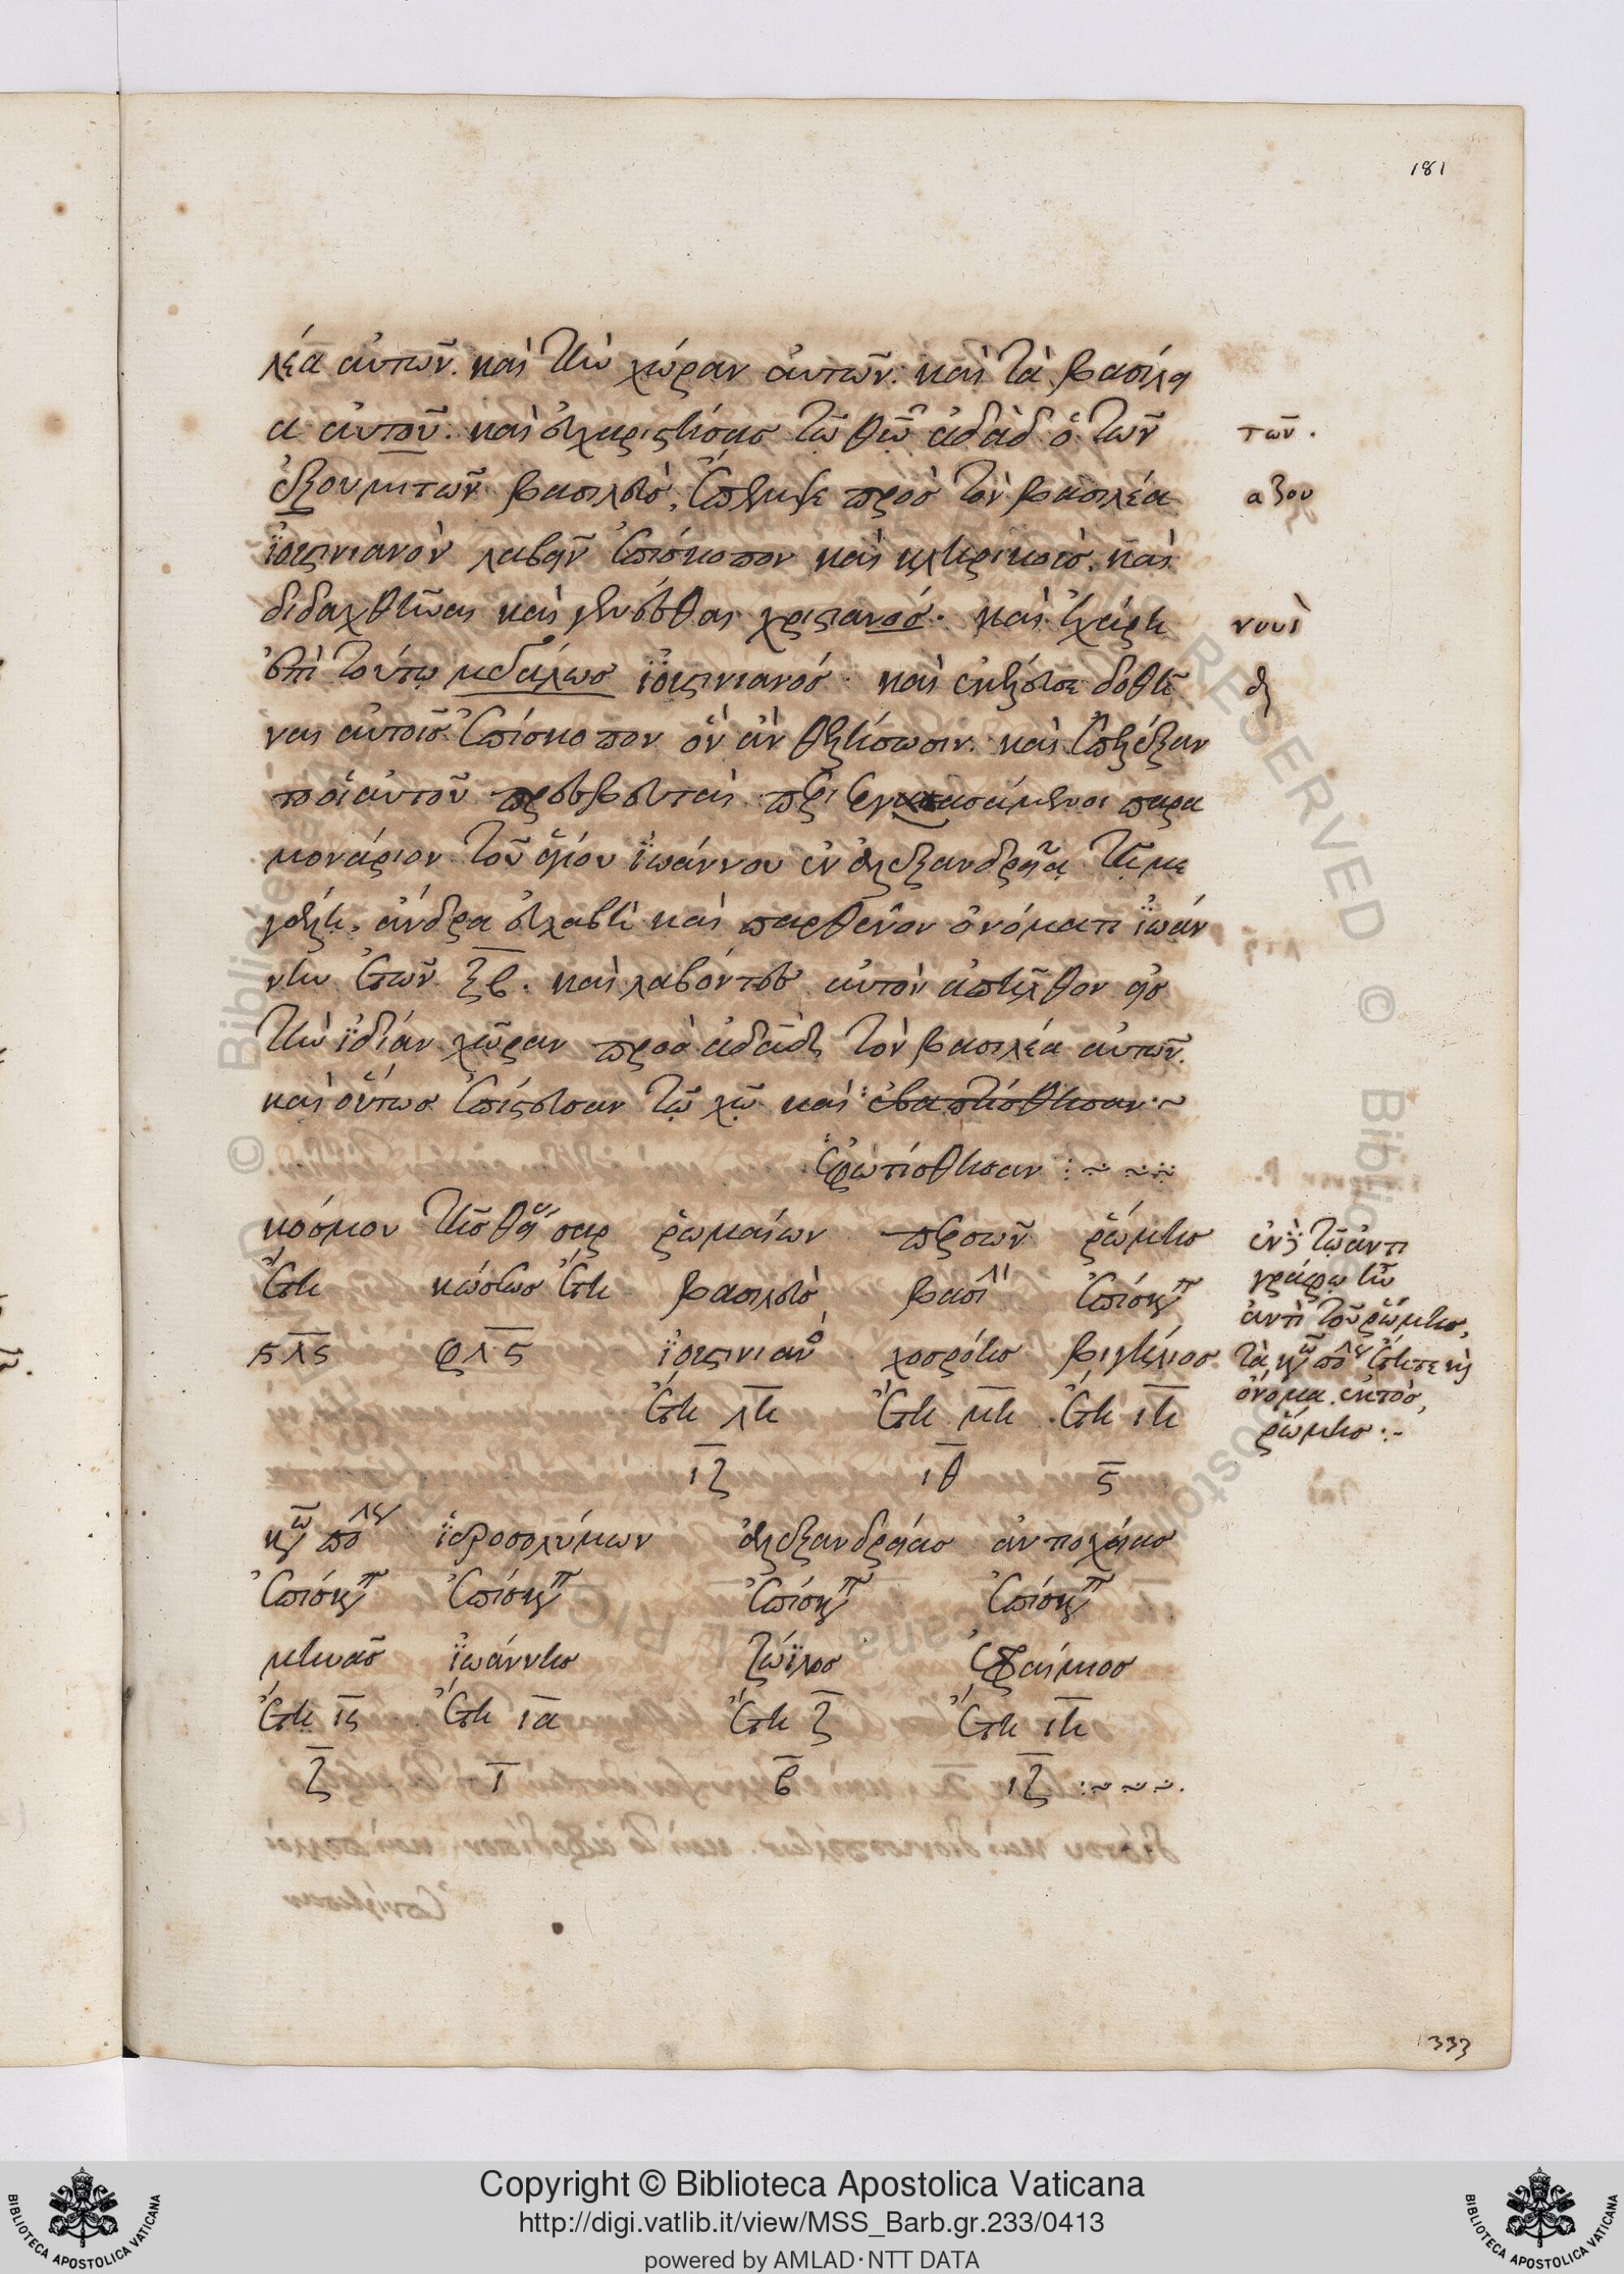 181
λέα αὐτῶν. καὶ τὴν χώραν αὐτῶν. καὶ τὰ βασίλει
α αὐτοῦ. καὶ εὐχαριστήσας τῷ θῶ ἀδὰδ ὁ τῶν
των.
ἐξουμιτῶν βασιλεὺς, ἔπεμψε πρὸς τὸν βασιλέα
αζου
ϊουστινιανὸν λαβεῖν ἐπίσκοπον καὶ κληρικοὺς. καὶ
διδαχθῆναι καὶ γενέσθαι χριστιανός. καὶ ἐχάρη
νουὶ
ἐπὶ τούτῳ μεδάλως ϊουστινιανός. καὶ ἐκέλευσε δοθῆ
ναι αὐτοῖς ἐπίσκοπον ὃν ἂν θελήσωσιν. καὶ ἐπελέξαν
το οἱ αὐτοῦ πρεσβευταὶ περι ασάμενοι παρα
μονάριον τοῦ ἁγίου ϊωάννου ἐν ἀλεξανδρείᾳ τῇ με
γάλῃ. ἄνδρα εὐλαβῆ καὶ παρθένον ὀνόματι ϊωάν
νην ἐτῶν ξβ. καὶ λαβόντες αὐτὸν ἀπῆλθον εἰς
τὴν ϊδίαν χῶραν πρὸς ἀδὰδ τὸν βασιλέα αὐτῶν.
καὶ οὕτως ἐπίστευσαν τῷ χῷ καὶ ἐβαπτίσθησαν
ἐφωτίσθησαν
κόσμου τῆς θείας σαρ ῥωμαίων περσῶν ῥώμης
ἔτη κώσεως ἔτη βασιλεὺς βασιλ ἐπίσκοπ
ϛλϛ φλϛ ϊουστινιανὸ χοσρόης βιγήλιος
ἔτη λη ἔτη μη ἔτη ιη
ιζ ιθ ϛ
ἐν τῷ ἀντι
γράφω ἦν
ἀντὶ τοῦ ῥώμης,
ὄνομα ἐκτὸς,
ῥώμης
κων πο λε ϊεροσολύμων ἀλεξανδρείας ἀντιοχείας
ἐπίσκοπ ἐπίσκοπ ἐπίσκοπ ἐπίσκοπ
μηνᾶς ϊωάννης ζώϊλος ἐφραίμιος
ἔτη ιϛ ἔτη ια ἔτη ζ ἔτη ιη
ζ ι β ιζ
333
Copyright © Biblioteca Apostolica Vaticana
http://digi.vatlib.it/view/MSS_Barb.gr.233/0413
powered by AMLAD·NTT DATA
BIBLIOTECA APOSTOLICA VATICANA
BIBLIOTECA APOSTOLICA VATICANA